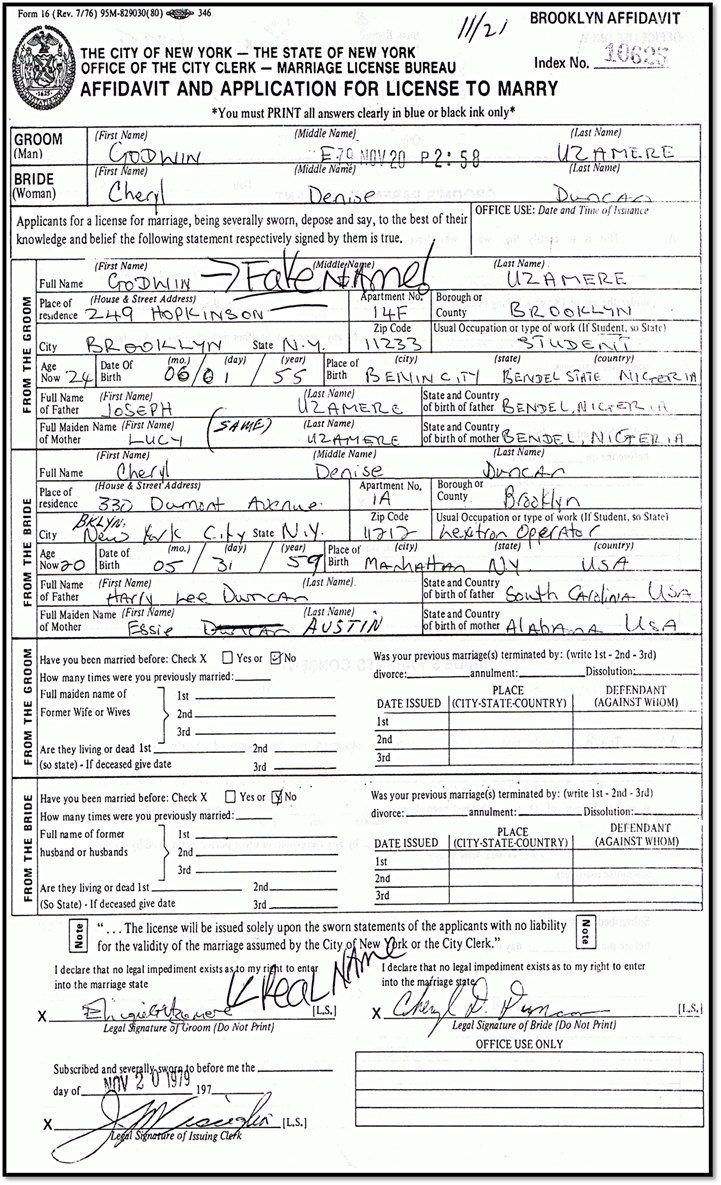 Form 16 (Rev. 7/76) 95M-829030(80) 346
11/21
BROOKLYN AFFIDAVIT
Index No. 10625
THE CITY OF NEW YORK — THE STATE OF NEW YORK
OFFICE OF THE CITY CLERK — MARRIAGE LICENSE BUREAU
AFFIDAVIT AND APPLICATION FOR LICENSE TO MARRY
*You must PRINT all answers clearly in blue or black ink only*
GROOM (Man) (First Name) GODWIN (Middle Name) (Last Name) UZAMERE
E 79 NOV 20 P 2:58
BRIDE (Woman) (First Name) Cheryl (Middle Name) Denise (Last Name) Duncan
Applicants for a license for marriage, being severally sworn, depose and say, to the best of their
knowledge and belief the following statement respectively signed by them is true.
OFFICE USE: Date and Time of Issuance
FROM THE GROOM
Full Name (First Name) GODWIN → FAKE NAME! (Middle Name) (Last Name) UZAMERE
Place of residence (House & Street Address) 249 HOPKINSON Apartment No. 14F Borough or County BROOKLYN
City BROOKLYN State N.Y. Zip Code 11233 Usual Occupation or type of work (If Student, so State) STUDENT
Age Now 24 Date Of Birth (mo.) 06 / (day) 01 / (year) 55 Place of Birth (city) BENIN CITY (state) BENDEL STATE (country) NIGERIA
Full Name of Father (First Name) JOSEPH (Last Name) UZAMERE State and Country of birth of father BENDEL, NIGERIA
Full Maiden Name of Mother (First Name) LUCY (SAME) (Last Name) UZAMERE State and Country of birth of mother BENDEL, NIGERIA
FROM THE BRIDE
Full Name (First Name) Cheryl (Middle Name) Denise (Last Name) Duncan
Place of residence (House & Street Address) 330 Dumont Avenue Apartment No. 1A Borough or County Brooklyn
City BKLYN. New York City State N.Y. Zip Code 11212 Usual Occupation or type of work (If Student, so State) Lexitron Operator
Age Now 20 Date of Birth (mo.) 05 / (day) 31 / (year) 59 Place of Birth (city) Manhattan (state) NY (country) USA
Full Name of Father (First Name) Harry Lee Duncan (Last Name) State and Country of birth of father South Carolina USA
Full Maiden Name of Mother (First Name) Essie Duncan AUSTIN (Last Name) State and Country of birth of mother Alabama USA
FROM THE GROOM
Have you been married before: Check X Yes or No
How many times were you previously married:
Full maiden name of Former Wife or Wives 1st 2nd 3rd
Are they living or dead 1st 2nd
(so state) - If deceased give date 3rd
Was your previous marriage(s) terminated by: (write 1st - 2nd - 3rd)
divorce: annulment: Dissolution:
DATE ISSUED PLACE (CITY-STATE-COUNTRY) DEFENDANT (AGAINST WHOM)
1st
2nd
3rd
FROM THE BRIDE
Have you been married before: Check X Yes or No
How many times were you previously married:
Full name of former husband or husbands 1st 2nd 3rd
Are they living or dead 1st 2nd
(So State) - If deceased give date 3rd
Was your previous marriage(s) terminated by: (write 1st - 2nd - 3rd)
divorce: annulment: Dissolution:
DATE ISSUED PLACE (CITY-STATE-COUNTRY) DEFENDANT (AGAINST WHOM)
1st
2nd
3rd
Note "... The license will be issued solely upon the sworn statements of the applicants with no liability Note
for the validity of the marriage assumed by the City of New York or the City Clerk."
I declare that no legal impediment exists as to my right to enter
into the marriage state
REAL NAME
X [L.S.]
Legal Signature of Groom (Do Not Print)
I declare that no legal impediment exists as to my right to enter
into the marriage state.
X Cheryl D. Duncan [L.S.]
Legal Signature of Bride (Do Not Print)
Subscribed and severally sworn to before me the
day of NOV 20 1979 197
X [L.S.]
Legal Signature of Issuing Clerk
OFFICE USE ONLY